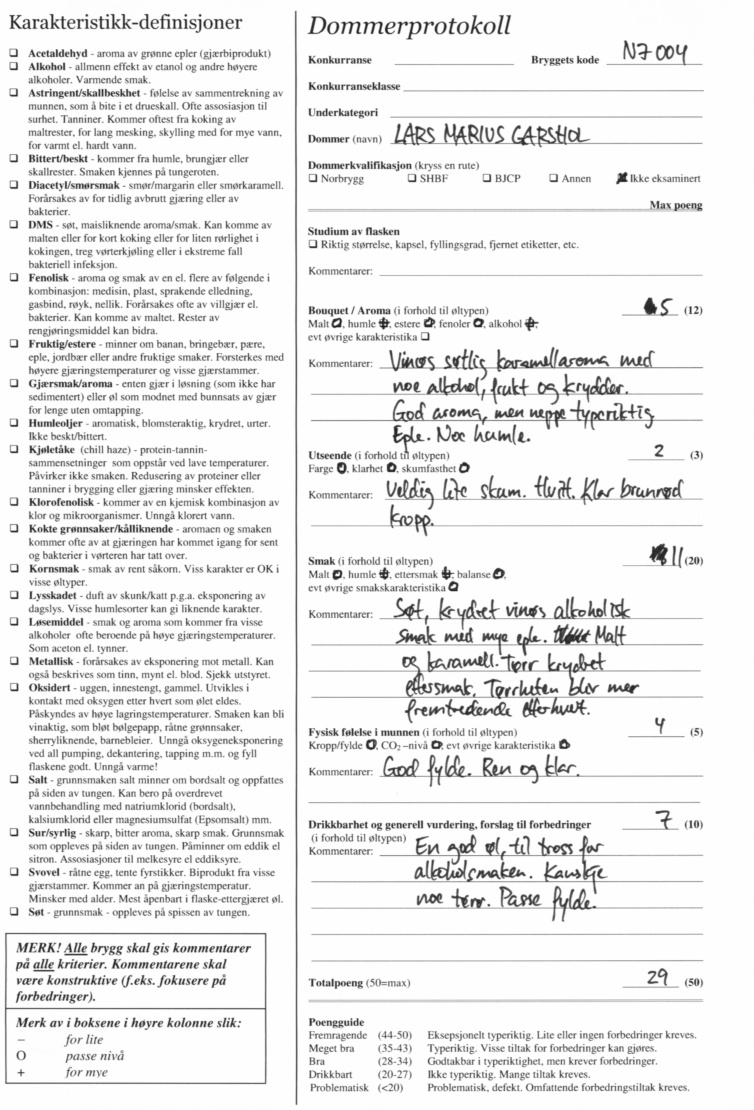 Karakteristikk-definisjoner
☐ Acetaldehyd - aroma av grønne epler (gjærbiprodukt)
☐ Alkohol - allmenn effekt av etanol og andre høyere
alkoholer. Varmende smak.
☐ Astringent/skallbeskhet - følelse av sammentrekning av
munnen, som å bite i et drueskall. Ofte assosiasjon til
surhet. Tanniner. Kommer oftest fra koking av
maltrester, for lang mesking, skylling med for mye vann,
for varmt el. hardt vann.
☐ Bittert/beskt - kommer fra humle, brungjær eller
skallrester. Smaken kjennes på tungeroten.
☐ Diacetyl/smørsmak - smør/margarin eller smørkaramell.
Forårsakes av for tidlig avbrutt gjæring eller av
bakterier.
☐ DMS - søt, maisliknende aroma/smak. Kan komme av
malten eller for kort koking eller for liten rørlighet i
kokingen, treg vørterkjøling eller i ekstreme fall
bakteriell infeksjon.
☐ Fenolisk - aroma og smak av en el. flere av følgende i
kombinasjon: medisin, plast, sprakende elledning,
gasbind, røyk, nellik. Forårsakes ofte av villgjær el.
bakterier. Kan komme av maltet. Rester av
rengjøringsmiddel kan bidra.
☐ Fruktig/estere - minner om banan, bringebær, pære,
eple, jordbær eller andre fruktige smaker. Forsterkes med
høyere gjæringstemperaturer og visse gjærstammer.
☐ Gjærsmak/aroma - enten gjær i løsning (som ikke har
sedimentert) eller øl som modnet med bunnsats av gjær
for lenge uten omtapping.
☐ Humleoljer - aromatisk, blomsteraktig, krydret, urter.
Ikke beskt/bittert.
☐ Kjøletåke (chill haze) - protein-tannin-
sammensetninger som oppstår ved lave temperaturer.
Påvirker ikke smaken. Redusering av proteiner eller
tanniner i brygging eller gjæring minsker effekten.
☐ Klorofenolisk - kommer av en kjemisk kombinasjon av
klor og mikroorganismer. Unngå klorert vann.
☐ Kokte grønnsaker/kålliknende - aromaen og smaken
kommer ofte av at gjæringen har kommet igang for sent
og bakterier i vørteren har tatt over.
☐ Kornsmak - smak av rent såkorn. Viss karakter er OK i
visse øltyper.
☐ Lysskadet - duft av skunk/katt p.g.a. eksponering av
dagslys. Visse humlesorter kan gi liknende karakter.
☐ Løsemiddel - smak og aroma som kommer fra visse
alkoholer ofte beroende på høye gjæringstemperaturer.
Som aceton el. tynner.
☐ Metallisk - forårsakes av eksponering mot metall. Kan
også beskrives som tinn, mynt el. blod. Sjekk utstyret.
☐ Oksidert - uggen, innestengt, gammel. Utvikles i
kontakt med oksygen etter hvert som ølet eldes.
Påskyndes av høye lagringstemperaturer. Smaken kan bli
vinaktig, som bløt bølgepapp, råtne grønnsaker,
sherryliknende, barnebleier. Unngå oksygeneksponering
ved all pumping, dekantering, tapping m.m. og fyll
flaskene godt. Unngå varme!
☐ Salt - grunnsmaken salt minner om bordsalt og oppfattes
på siden av tungen. Kan bero på overdrevet
vannbehandling med natriumklorid (bordsalt),
kalsiumklorid eller magnesiumsulfat (Epsomsalt) mm.
☐ Sur/syrlig - skarp, bitter aroma, skarp smak. Grunnsmak
som oppleves på siden av tungen. Påminner om eddik el
sitron. Assosiasjoner til melkesyre el eddiksyre.
☐ Svovel - råtne egg, tente fyrstikker. Biprodukt fra visse
gjærstammer. Kommer an på gjæringstemperatur.
Minsker med alder. Mest åpenbart i flaske-ettergjæret øl.
☐ Søt - grunnsmak - oppleves på spissen av tungen.
MERK! Alle brygg skal gis kommentarer
på alle kriterier. Kommentarene skal
være konstruktive (f.eks. fokusere på
forbedringer).
Merk av i boksene i høyre kolonne slik:
– for lite
O passe nivå
+ for mye
Dommerprotokoll
Konkurranse Bryggets kode N7004
Konkurranseklasse
Underkategori
Dommer (navn) LARS MARIUS GARSHOL
Dommerkvalifikasjon (kryss en rute)
☐ Norbrygg ☐ SHBF ☐ BJCP ☐ Annen ☒ Ikke eksaminert
Max poeng
Studium av flasken
☐ Riktig størrelse, kapsel, fyllingsgrad, fjernet etiketter, etc.
Kommentarer:
Bouquet / Aroma (i forhold til øltypen) 5 (12)
Malt O, humle +, estere O, fenoler O, alkohol +,
evt øvrige karakteristika ☐
Kommentarer: Vinøs søtlig karamellaroma med
noe alkohol, frukt og krydder.
God aroma, men neppe typeriktig
Eple. Noe humle.
Utseende (i forhold til øltypen) 2 (3)
Farge O, klarhet O, skumfasthet O
Kommentarer: Veldig lite skum. Hvit. Klar brunrød
kropp.
Smak (i forhold til øltypen) 11 (20)
Malt O, humle +, ettersmak +, balanse O,
evt øvrige smakskarakteristika O
Kommentarer: Søt, krydret vinøs alkoholisk
smak med mye eple. Malt
og karamell. Tørr krydret
ettersmak. Tørrheten blir mer
fremtredende etterhvert.
Fysisk følelse i munnen (i forhold til øltypen) 4 (5)
Kropp/fylde O, CO₂ –nivå O, evt øvrige karakteristika O
Kommentarer: God fylde. Ren og klar.
Drikkbarhet og generell vurdering, forslag til forbedringer 7 (10)
(i forhold til øltypen)
Kommentarer: En god øl, til tross for
alkoholsmaken. Kanskje
noe tørr. Passe fylde.
Totalpoeng (50=max) 29 (50)
Poengguide
Fremragende (44-50) Eksepsjonelt typeriktig. Lite eller ingen forbedringer kreves.
Meget bra (35-43) Typeriktig. Visse tiltak for forbedringer kan gjøres.
Bra (28-34) Godtakbar i typeriktighet, men krever forbedringer.
Drikkbart (20-27) Ikke typeriktig. Mange tiltak kreves.
Problematisk (<20) Problematisk, defekt. Omfattende forbedringstiltak kreves.